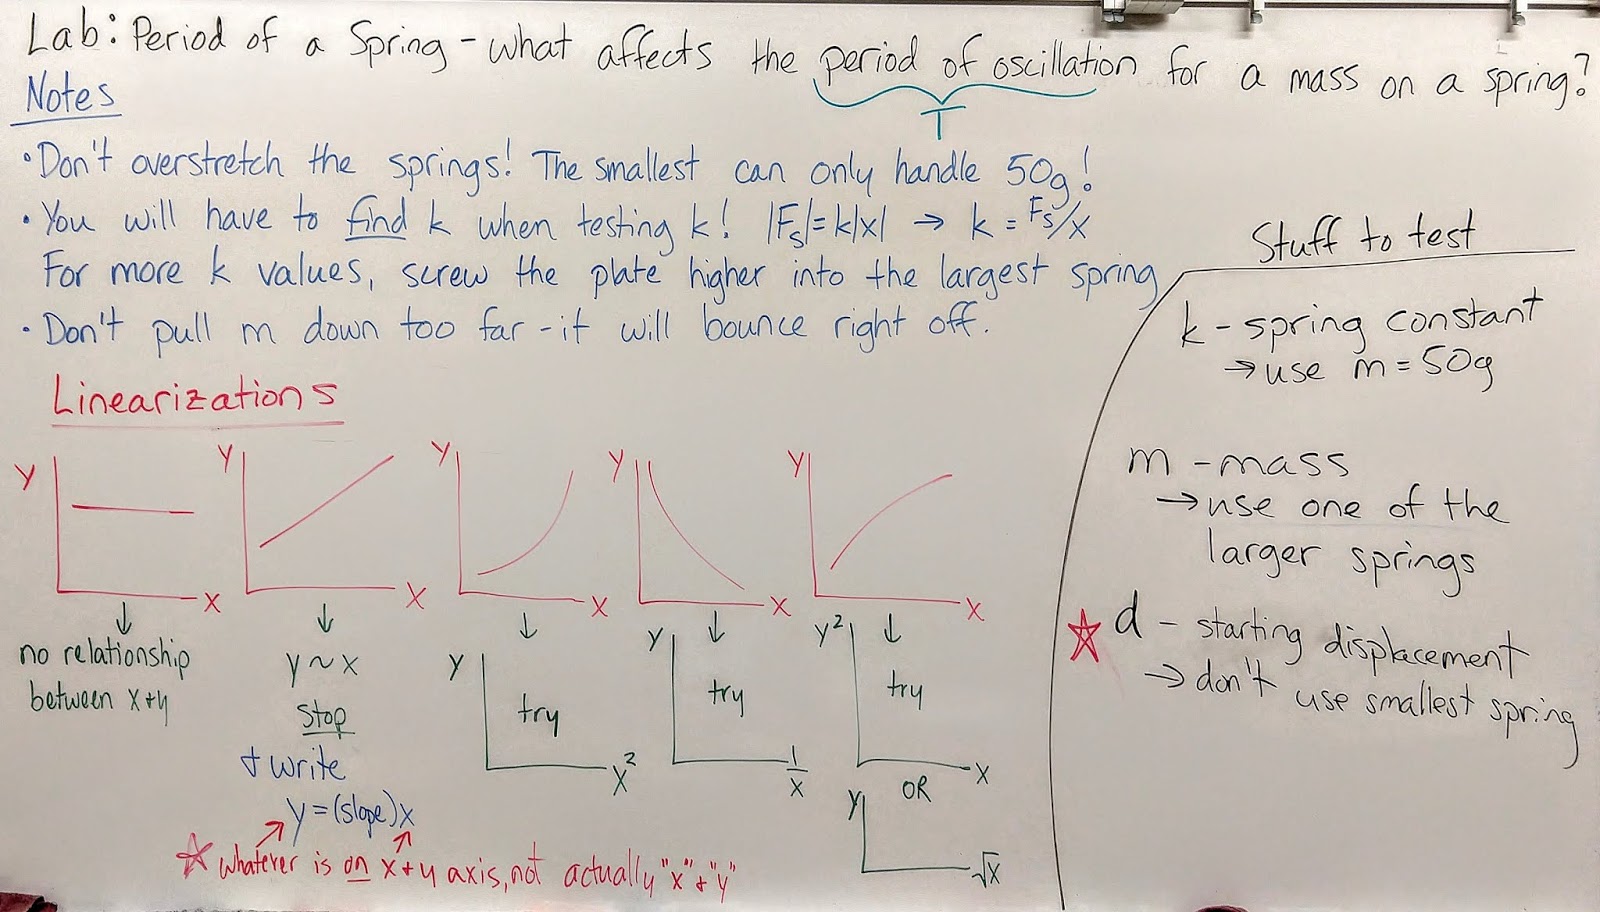 Lab: Period of a Spring - what affects the period of oscillation for a mass on a spring?
T
Notes
• Don't overstretch the springs! The smallest can only handle 50g!
• You will have to find k when testing k! |Fs|= k|x| → k = Fs/x
For more k values, screw the plate higher into the largest spring
• Don't pull m down too far - it will bounce right off.
Linearizations
y x
y x
y x
y x
y x
↓ no relationship
between x + y
↓ y ~ x
stop
+ write
y = (slope)x
☆ whatever is on x + y axis, not actually "x" + "y"
↓ y try x²
↓ y try 1/x
↓ y² try x
OR
y √x
Stuff to test
k - spring constant
→ use m = 50g
m - mass
→ use one of the
larger springs
☆ d - starting displacement
→ don't use smallest spring